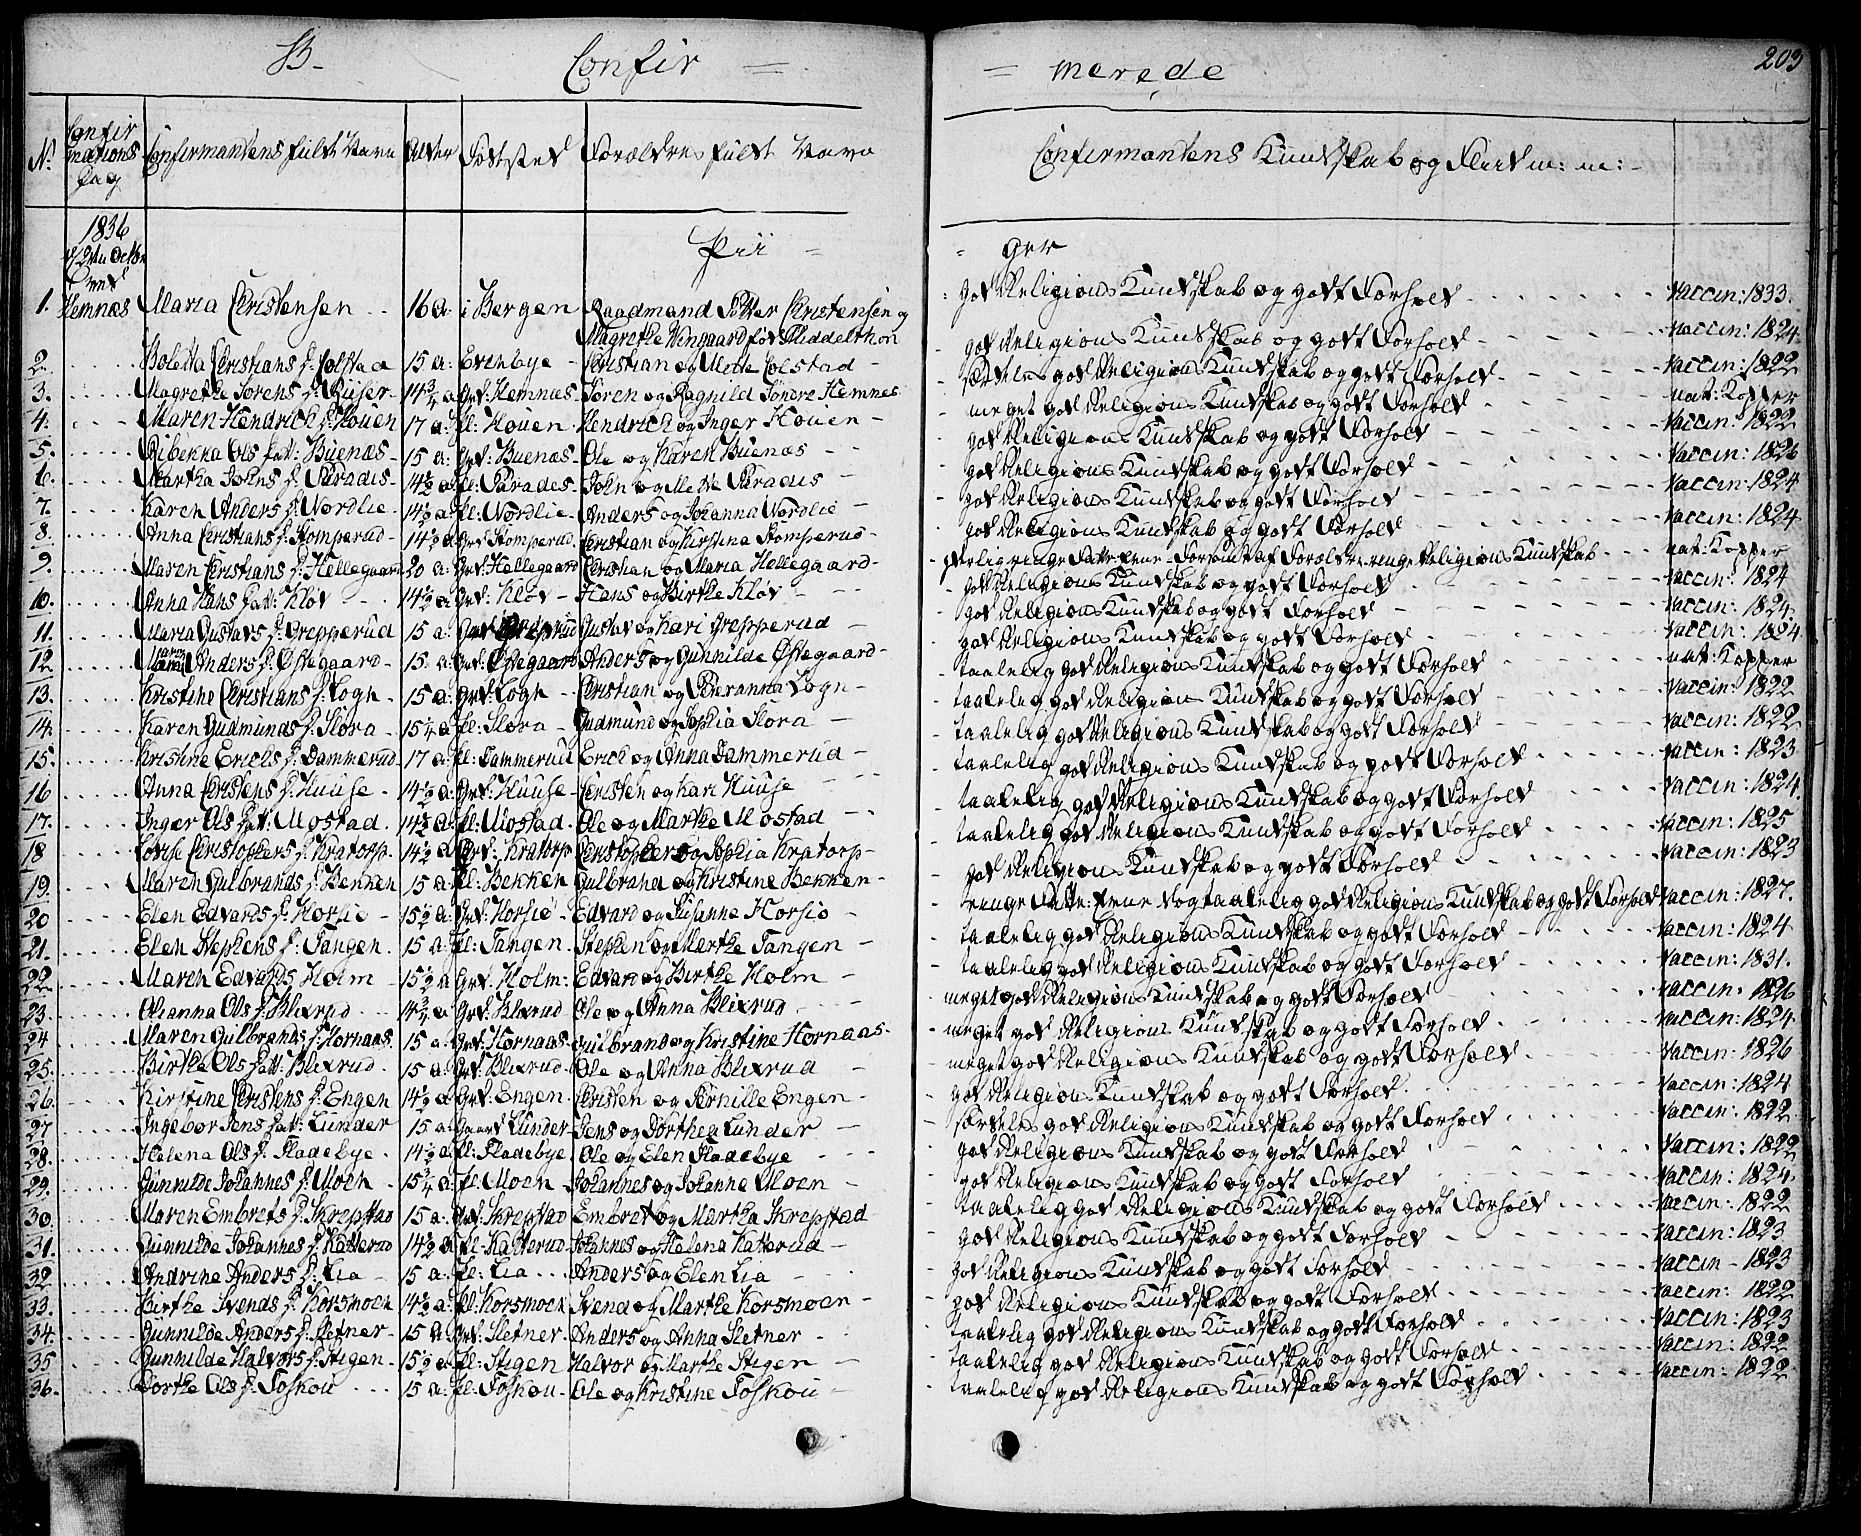 B.
Confir =
= merede
203
No. Confirmations Dag Confirmantens fulde Navn Alder Fødested Forældres fulde Navn Confirmantens Kundskab og Flid m: m:
1836
2den Octbr
ved Hemnæs
Pii = = ger
1. Maria Christensen 16 a. i Bergen Raadmand Petter Christensen og god Religions Kundskab og godt Forhold Vaccin: 1833.
Magrethe Wingaard fød Middelthon
2. Bolette Christians D: Colstad 15 a: Evenbye Christian og Mette Colstad god Religions Kundskab og godt Forhold Vaccin: 1824
3. Magrethe Sørens D: Riiser 14 3/4 a Grd: Hemnæs Søren og Ragnild Søndre Hemnes særdeles god Religions Kundskab og godt Forhold Vaccin: 1822
4. Maren Hendrich D: Houen 17 a: Pl: Houen Hendrich og Inger Houen meget god Religions Kundskab og godt Forhold nat: Kopper
5. Ribekka Ols Dat: Buenæs 15 a: Grd: Buenæs Ole og Karen Buenæs god Religions Kundskab og godt Forhold Vaccin: 1822
6. Martha Johns D: Paradis 14 1/2 a Pl: Parades John og Mette Paradis god Religions Kundskab og godt Forhold Vaccin: 1826
7. Karen Anders D: Nordlie 14 1/2 a: Pl: Nordlie Anders og Johanna Nordlie god Religions Kundskab og godt Forhold Vaccin: 1824
8. Anna Christians D: Stomperud 14 1/2 a Grd: Stomperud Christian og Kirstina Stomperud god Religions Kundskab og godt Forhold Vaccin: 1824
9. Maren Christians D: Hellegaard 20 a: Grd: Hellegaard Christian og Maria Hellegaard ringe Fatte Evne Forældre ringe Religions Kundskab nat: Kopper
10. Anna Hans Dat: Kløv 14 1/2 a: Grd: Kløv Hans og Birthe Kløv god Religions Kundskab og godt Forhold Vaccin: 1824
11. Maria Gustavs D: Grepperud 15 a: Grd: Grepperud Gustav og Kari Grepperud god Religions Kundskab og godt Forhold Vaccin: 1824
12. Maren Anders D: Østegaard 15 a: Grd: Østegaard Anders og Gunnilde Østegaard god Religions Kundskab og godt Forhold Vaccin: 1824
13. Kristine Christians D: Logn 15 a: Grd: Logn Christian og Peranna Logn taalelig god Religions Kundskab og godt Forhold nat: Kopper
14. Karen Gudmunds D: Slora 15 1/4 a Pl: Slora Gudmund og Sophia Slora taalelig god Religions Kundskab og godt Forhold Vaccin: 1822
15. Kristine Erichs D: Dammerud 17 a: Pl: Dammerud Erich og Anna Dammerud taalelig god Religions Kundskab og godt Forhold Vaccin: 1822
16 Anna Christens D: Huuse 14 1/2 a: Grd: Huuse Christen og Kari Huuse taalelig god Religions Kundskab og godt Forhold Vaccin: 1823
17. Inger Ols Dat: Mostad 14 1/2 a. Pl: Mostad Ole og Marthe Mostad taalelig god Religions Kundskab og godt Forhold Vaccin: 1824.
18 Lovise Christophers D: Kratorp 14 1/2 a Grd: Kratorp Christopher og Sophia Kratorp taalelig god Religions Kundskab og godt Forhold Vaccin: 1825
19. Maren Gulbrands D: Bekken 15 a: Pl: Bekken Gulbrand og Kristine Bekken god Religions Kundskab og godt Forhold Vaccin: 1823
20 Elen Edvards D: Horsiø 15 1/2 a: Grd: Horsiø Edvard og Susanne Horsiø ringe Fatte: Evne dog taalelig god Religions Kundskab og godt Forhold Vaccin: 1827.
21. Elen Stephens D: Tangen 15 a: Pl: Tangen Stephen og Marthe Tangen taalelig god Religions Kundskab og godt Forhold Vaccin: 1824
22 Maren Edvards Holm 15 1/2 a Grd: Holm: Edvard og Birthe Holm taalelig god Religions Kundskab og godt Forhold Vaccin: 1831.
23. Olianna Ols D: Blixrud 14 3/4 a Grd: Blixrud Ole og Anna Blixrud meget god Religions Kundskab og godt Forhold Vaccin: 1826
24 Maren Gulbrands D: Hornaas 15 a: Grd: Hornaas Gulbrand og Kristine Hornaas meget god Religions Kundskab og godt Forhold Vaccin: 1824
25. Birthe Ols Dat: Blixrud 15 a: Grd: Blixrud Ole og Anna Blixrud meget god Religions Kundskab og godt Forhold Vaccin: 1826
26. Kirstine Christens D: Engen 14 1/2 a Grd: Engen Christen og Pernille Engen god Religions Kundskab og godt Forhold Vaccin: 1824
27 Ingebor Jens Dat: Lunder 15 a: Gaard Lunder Jens og Dorthea Lunder særdeles god Religions Kundskab og godt Forhold Vaccin: 1822
28. Helena Ols D: Fladebye 14 1/2 a. Pl: Fladebye Ole og Elen Fladebye god Religions Kundskab og godt Forhold Vaccin: 1822
29. Gunnilde Johannes D: Moen 15 3/4 a: Pl: Moen Johannes og Johanne Moen god Religions Kundskab og godt Forhold Vaccin: 1824
30. Maren Embrets D: Skrepstad 15 a: Grd: Skrepstad Embret og Martha Skrepstad taalelig god Religions Kundskab og godt Forhold Vaccin: 1822
31. Gunnilde Johannes D: Katterud 14 1/2 a Pl: Katterud Johannes og Helena Katterud god Religions Kundskab og godt Forhold Vaccin: 1823
32 Andrine Anders D: Lia 15 a: Pl: Lia Anders og Elen Lia god Religions Kundskab og godt Forhold Vaccin - 1823
33. Birthe Svends D: Korsmoen 14 1/2 a: Pl: Korsmoen Svend og Marthe Korsmoen god Religions Kundskab og godt Forhold Vaccin: 1822
34. Gunnilde Anders D: Sletner 15 a: Grd: Sletner Anders og Anna Sletner taalelig god Religions Kundskab og godt Forhold Vaccin: 1823
35 Gunnilde Halvors D: Stigen 15 1/2 a Pl: Stigen Halvor og Marthe Stigen taalelig god Religions Kundskab og godt Forhold Vaccin: 1822
36. Dorthe Ols D: Foskou 15 a: Pl: Foskou Ole og Kristine Foskou taalelig god Religions Kundskab og godt Forhold Vaccin: 1822